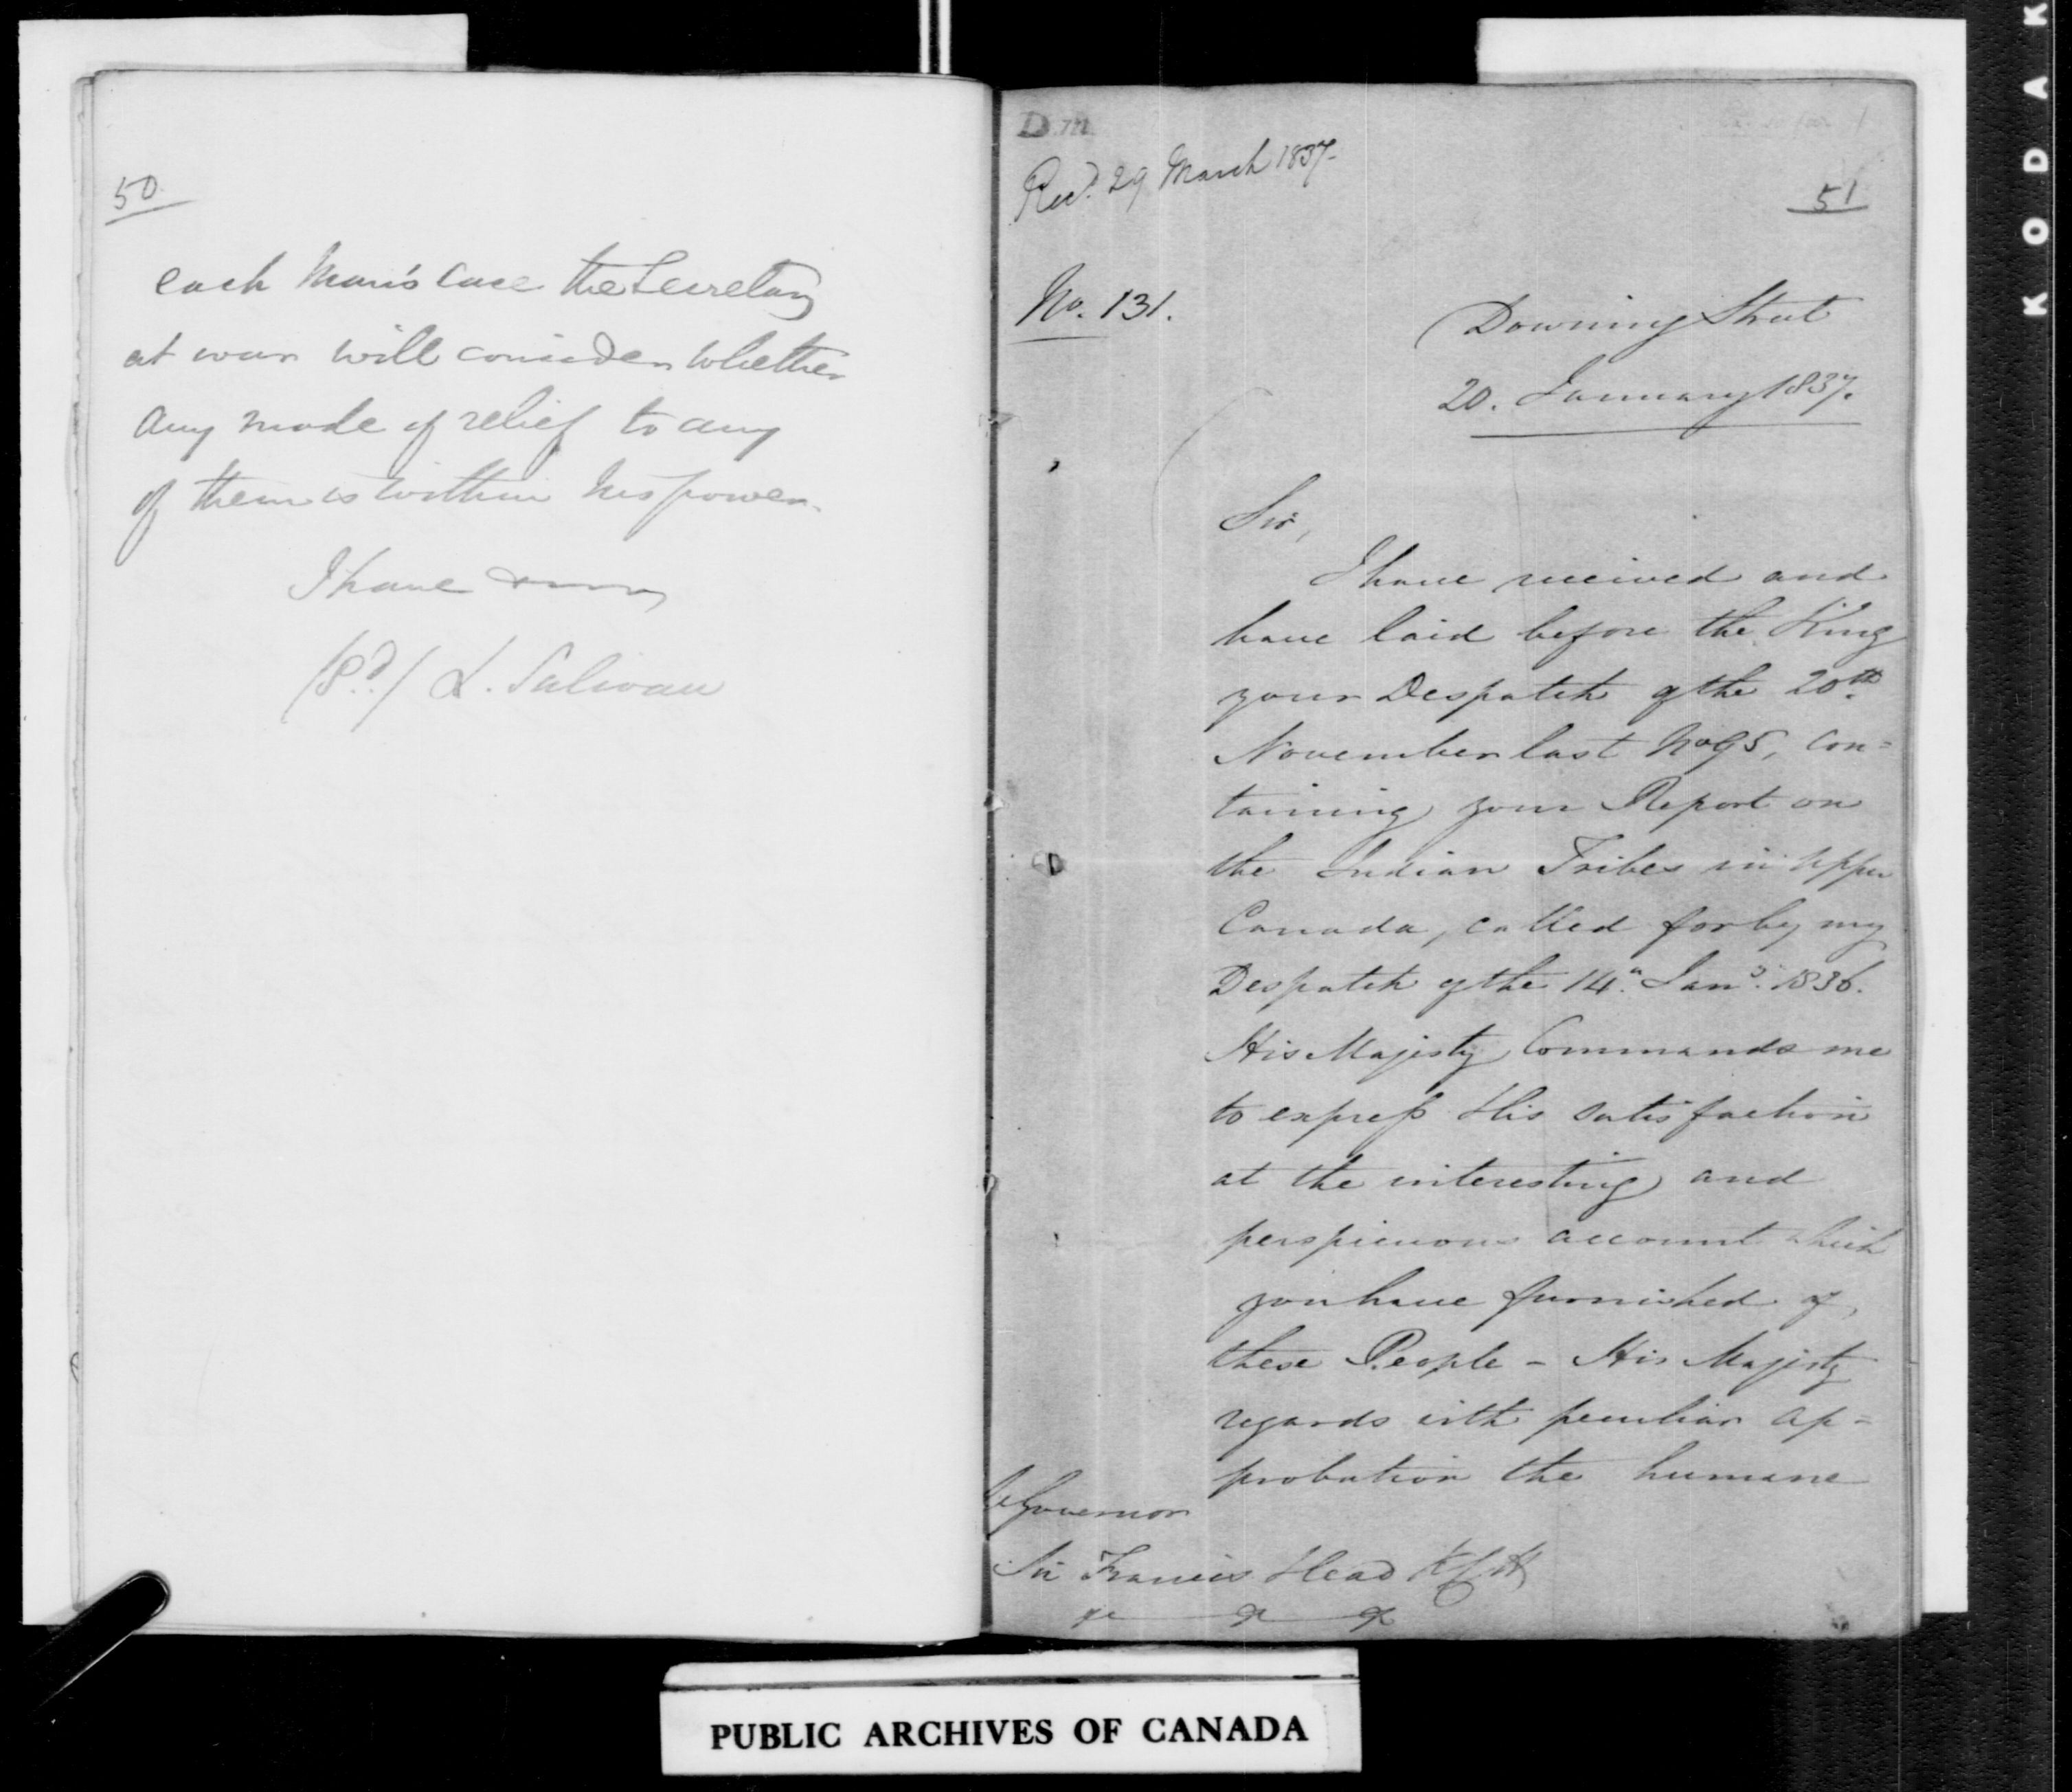 50
each Man's case the Secretary
at war will consider whether
any mode of relief to any
of them is within his power.
I have
(Sd.) L. Sulivan
Recd. 29 March 1837.
51
No. 131.
Downing Street
20. January 1837.
Sir,
I have received and
have laid before the King
your Despatch of the 20th
November last No 95, con=
taining your Report on
the Indian Tribes in Upper
Canada, called for by my
Despatch of the 14th Jany. 1836.
His Majesty Commands me
to express His satisfaction
at the interesting and
perspicuous account which
you have furnished of
these People - His Majesty
regards with peculiar ap=
probation the humane
Governor
Sir Francis Head KCH
&c &c &c
PUBLIC ARCHIVES OF CANADA
KODAK